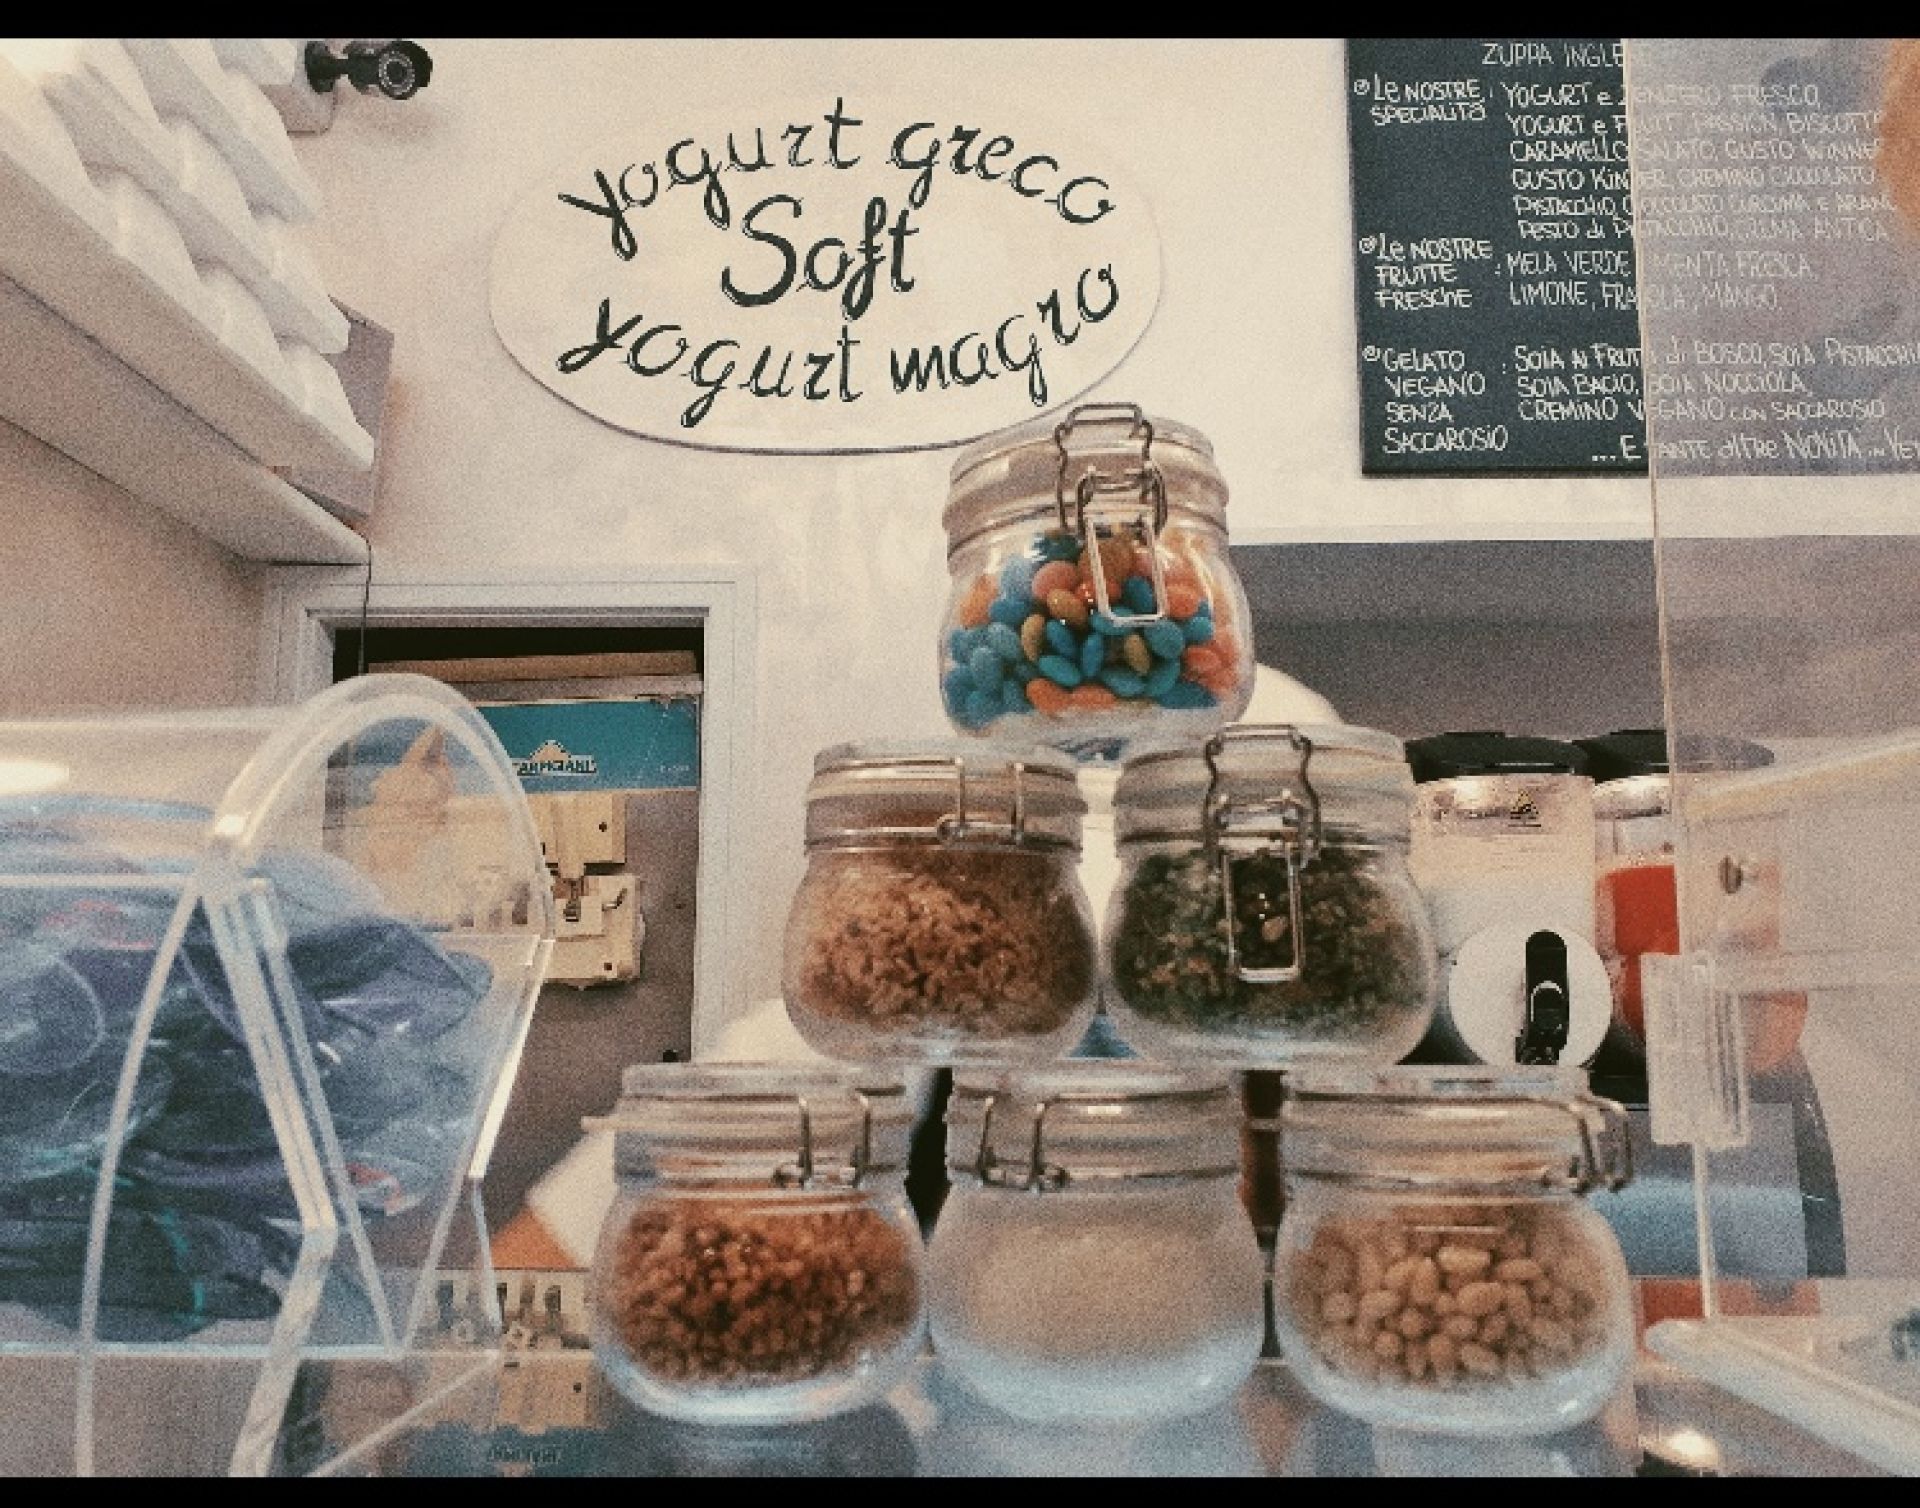 yogurt greco
Soft
yogurt magro
ZUPPA INGLE
Le NOSTRE SPECIALITÀ : YOGURT e ZENZERO FRESCO,
YOGURT e FRUIT PASSION, BISCOTT
CARAMELLO SALATO, GUSTO WINNE
GUSTO KINDER, CREMINO CIOCCOLATO
PISTACCHIO, CIOCCOLATO CURCUMA E ARANC
PESTO di PISTACCHIO, CREMA ANTICA
Le NOSTRE FRUTTE FRESCHE : MELA VERDE MENTA FRESCA,
LIMONE, FRAGOLA, MANGO,
GELATO VEGANO SENZA SACCAROSIO : SOIA AI FRUTTI di BOSCO, SOIA PISTACCHI
SOIA BACIO, SOIA NOCCIOLA,
CREMINO VEGANO CON SACCAROSIO
...E TANTE ALTRE NOVITÀ IN VET
CARPIGIANI